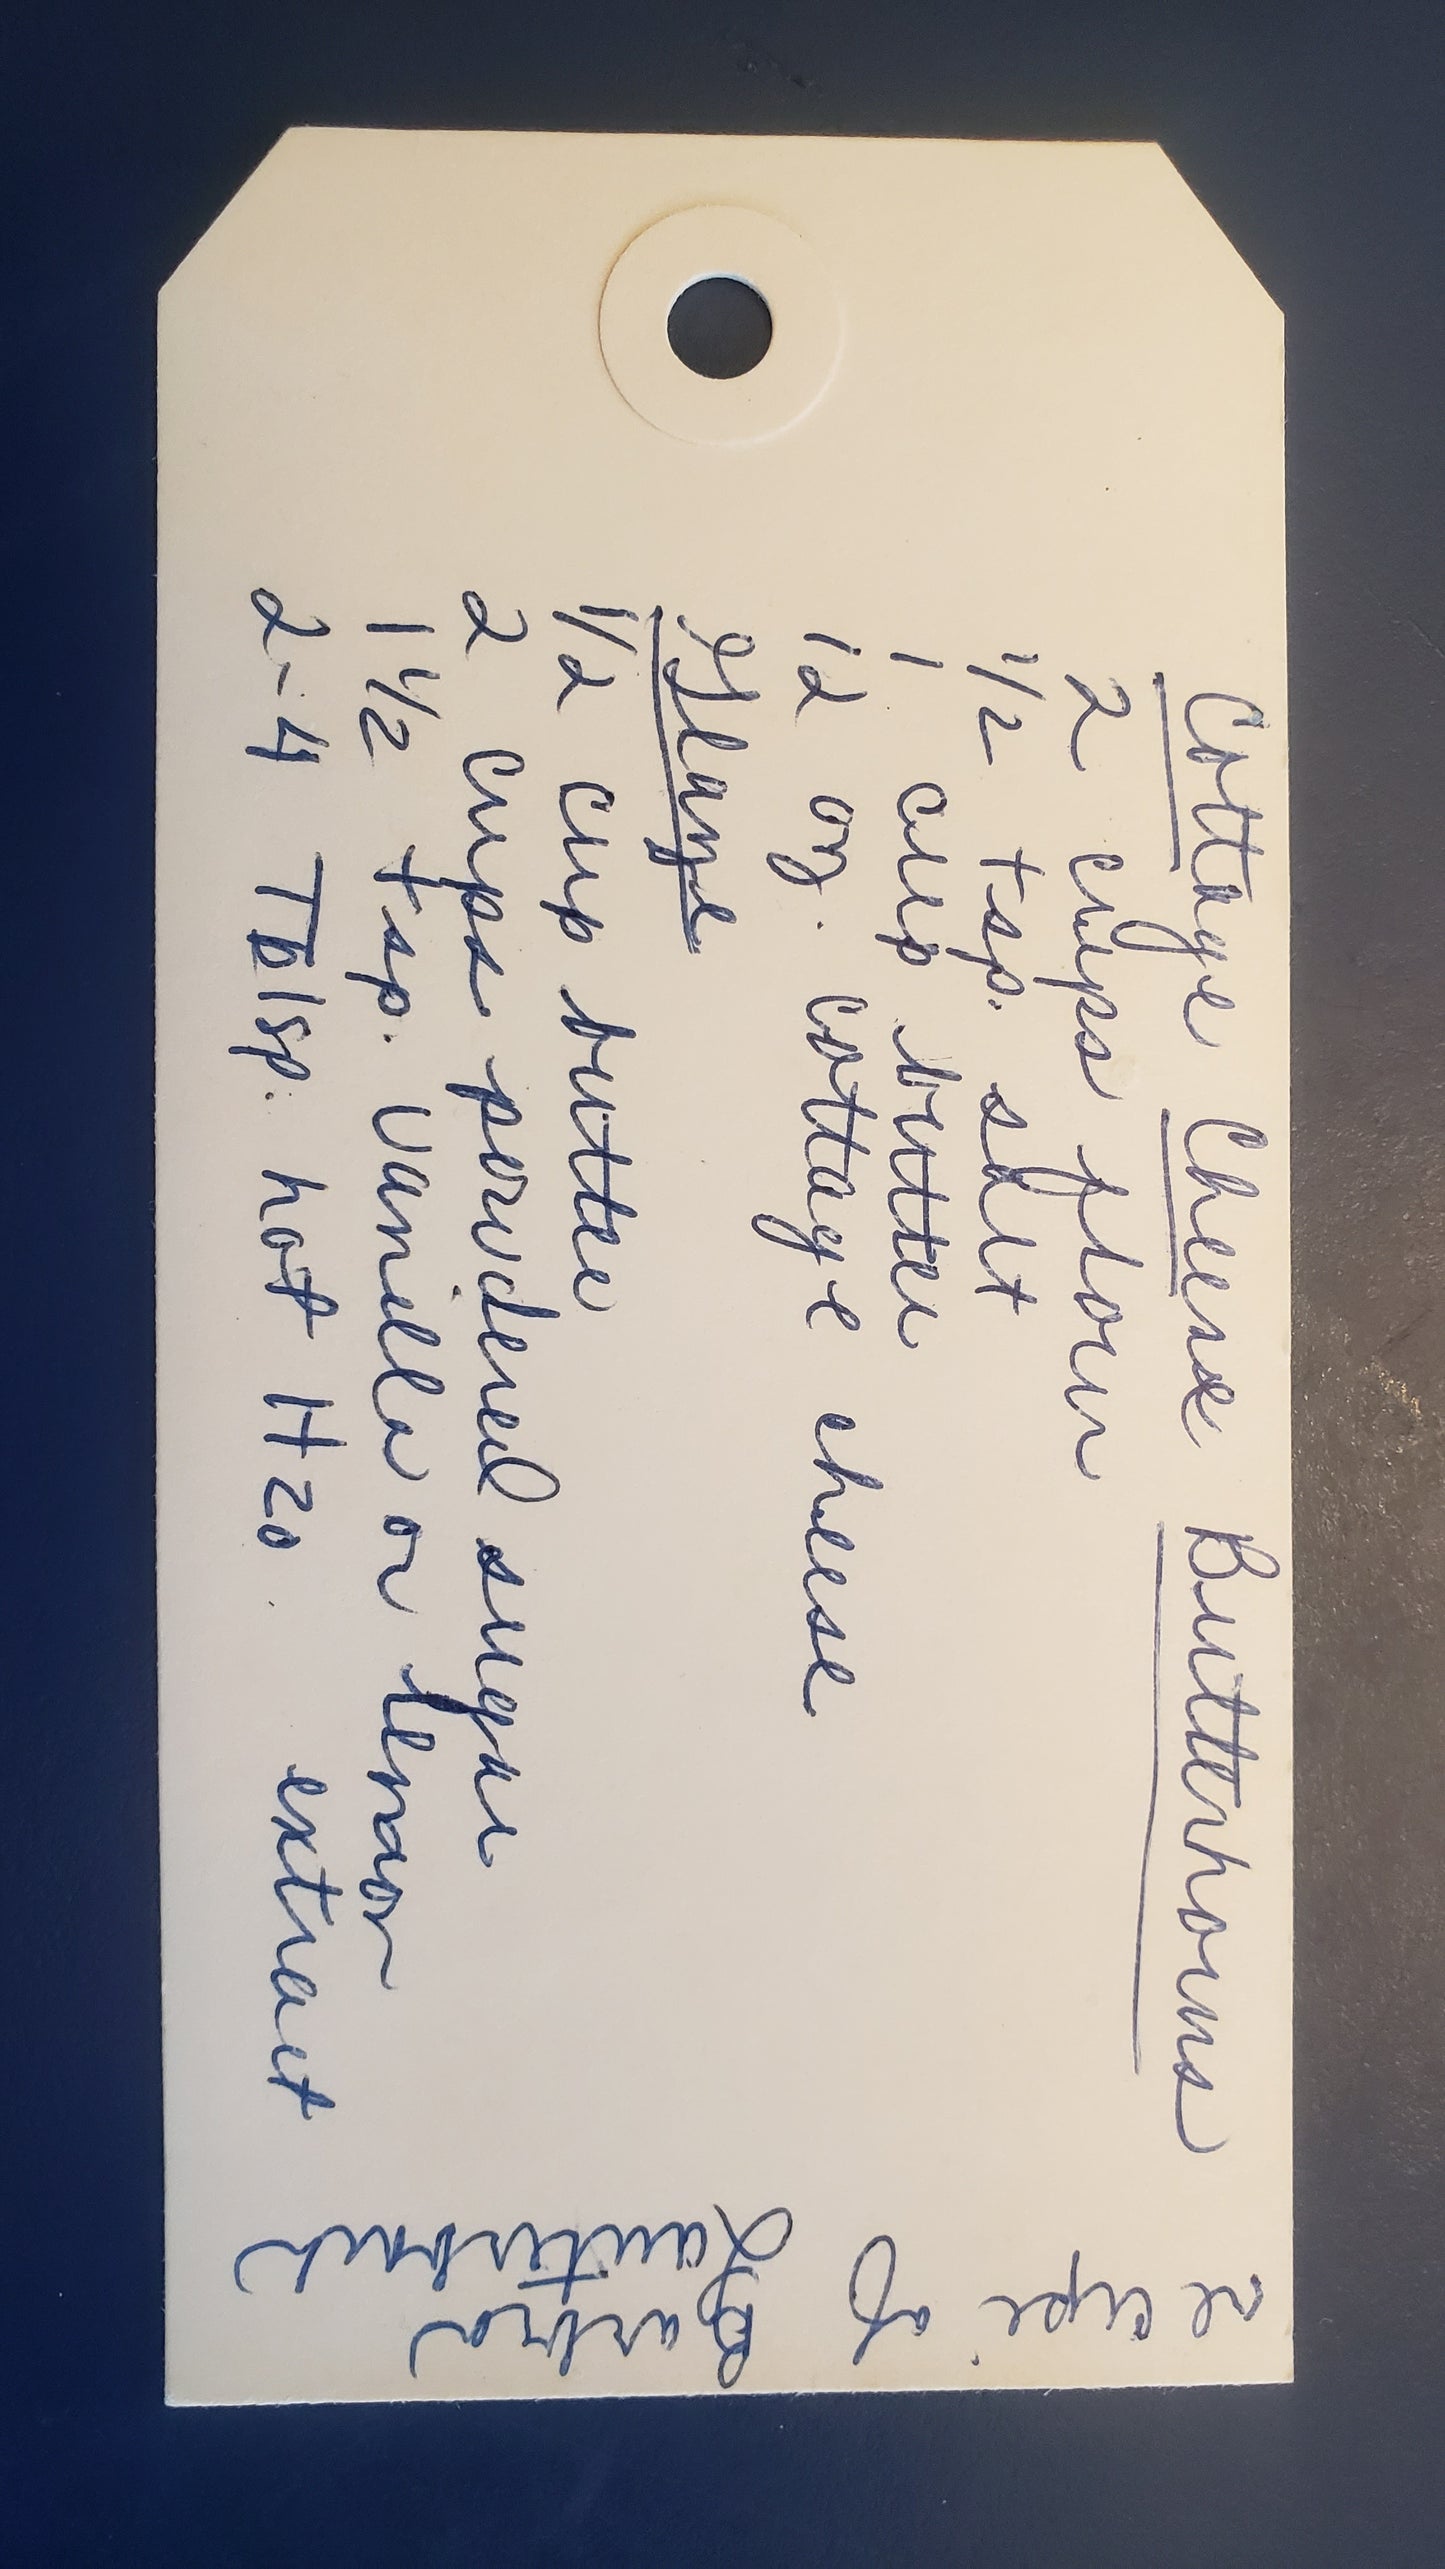 Cottage Cheese Butterhorns
2 cups flour
1/2 tsp. salt
1 cup butter
12 oz. cottage cheese
Glaze
1/2 cup butter
2 cups powdered sugar
1 1/2 tsp. vanilla or lemon
extract
2-4 Tblsp. hot H20.
Recipe of
Barbra
Lauterbach